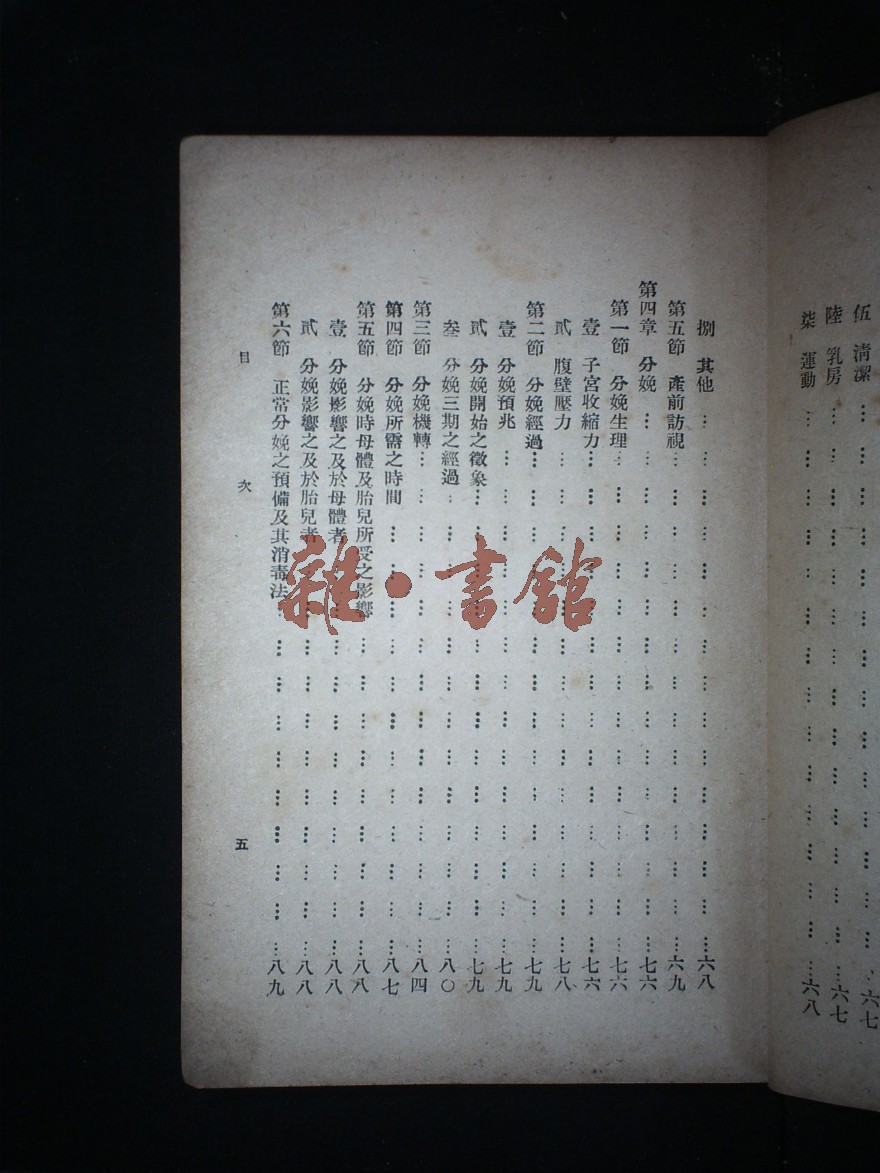 伍 清潔 … … … … … … … … 六七
陸 乳房 … … … … … … … … 六七
柒 運動 … … … … … … … … 六八
捌 其他 … … … … … … … … 六八
第五節 產前訪視 … … … … … … … … 六九
第四章 分娩 … … … … … … … … 七六
第一節 分娩生理 … … … … … … … … 七六
壹 子宮收縮力 … … … … … … … … 七六
貳 腹壁壓力 … … … … … … … … 七八
第二節 分娩經過 … … … … … … … … 七九
壹 分娩預兆 … … … … … … … … 七九
貳 分娩開始之徵象 … … … … … … … … 七九
叁 分娩三期之經過 … … … … … … … … 八〇
第三節 分娩機轉 … … … … … … … … 八四
第四節 分娩所需之時間 … … … … … … … … 八七
第五節 分娩時母體及胎兒所受之影響 … … … … … … 八八
壹 分娩影響之及於母體者 … … … … … … … 八八
貳 分娩影響之及於胎兒者 … … … … … … … 八八
第六節 正常分娩之預備及其消毒法 … … … … … … 八九
目 次 五
雜·書館